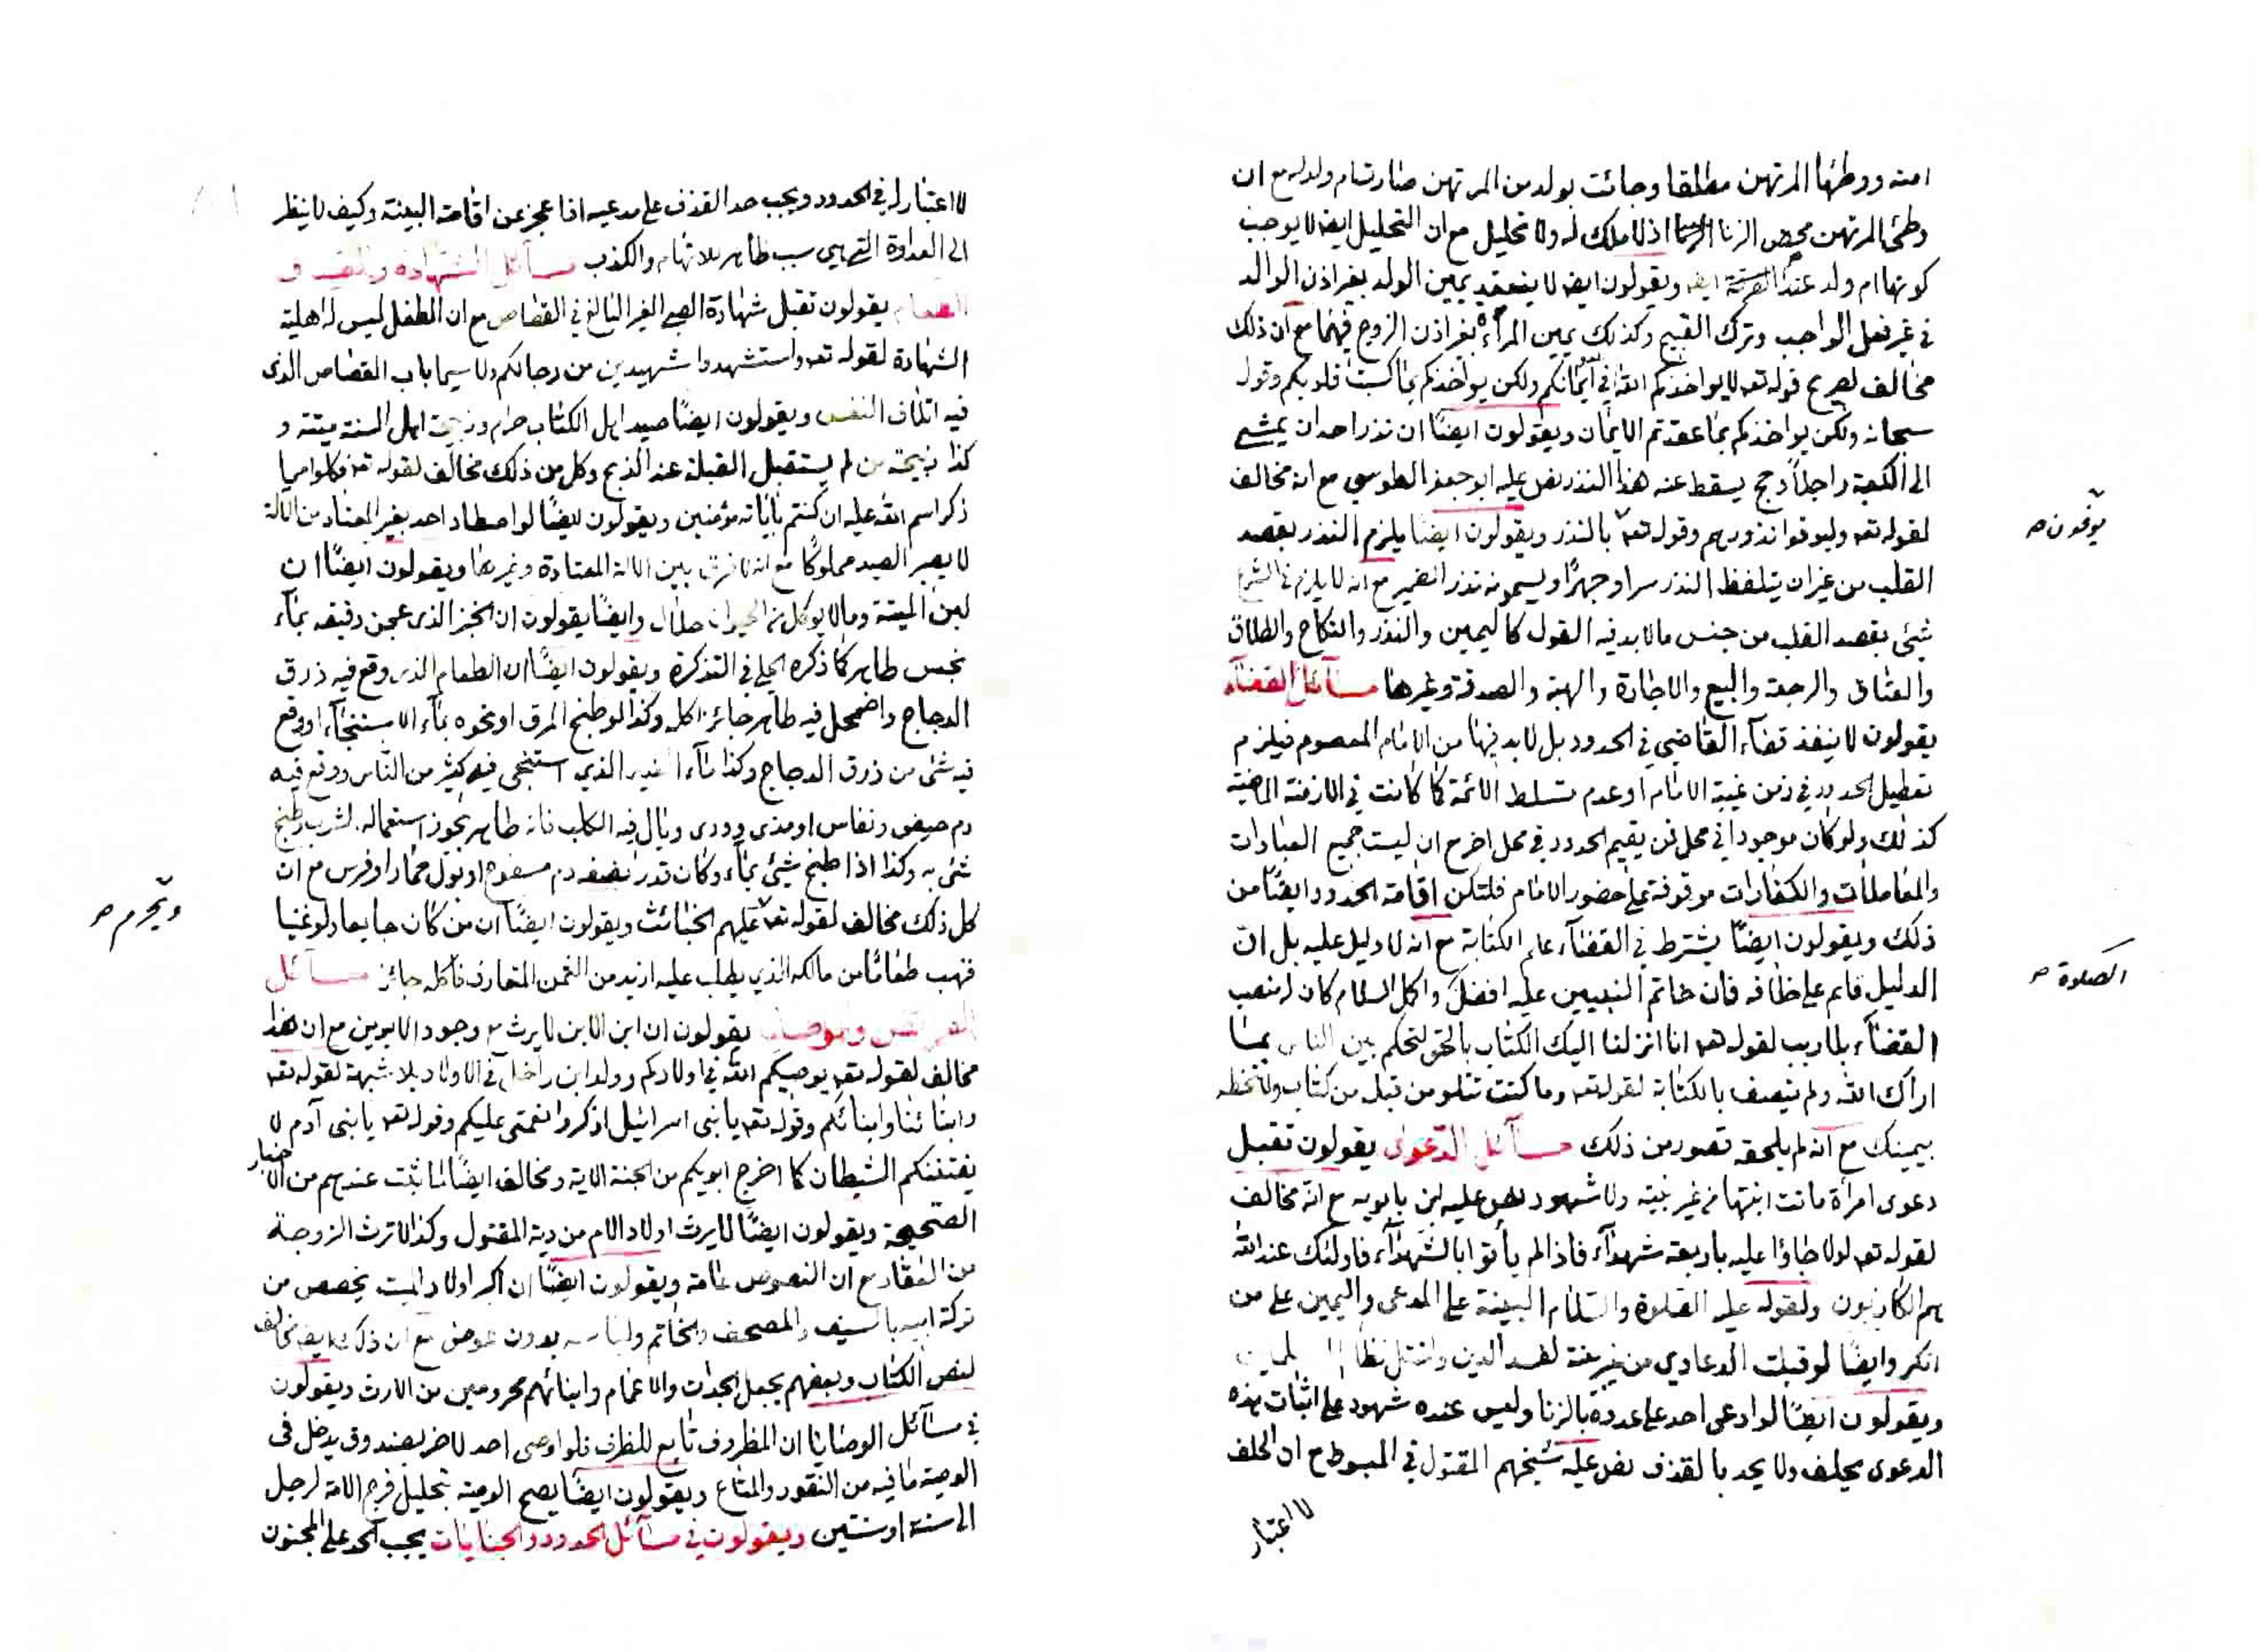 امته ووطئها المرتهن مطلقا وجائت بولد من المرتهن صارت ام ولد له مع ان
وطئ المرتهن محض الزنا اذ لا ملك له ولا تحليل مع ان التحليل ايضا لا يوجب
كونها ام ولد عند ويقولون ايضا لا ينعقد يمين الولد بغير اذن الوالد
في غير فعل الواجب وترك القبيح وكذلك يمين المرأة بغير اذن الزوج فيهما مع ان ذلك
مخالف لصريح قوله تعه لا يواخذكم الله في أيمانكم ولكن يواخذكم بما كسبت قلوبكم وقوله
سبحانه ولكن يواخذكم بما عقدتم الايمان ويقولون ايضًا ان نذر احد ان يمشي
الى الكعبة راجلاً وحج يسقط عنه هذا النذر نص عليه ابو جعفر الطوسي مع انه مخالف
لقوله تعه وليوفوا نذورهم وقوله تعه بالنذر ويقولون ايضًا يلزم النذر بقصد
يوفون صح
القلب من غير ان يتلفظ النذر سرا وجهرًا ويسمونه نذر الضمير مع انه لا يلزم في الشرع
شيئ بقصد القلب من جنس ما لا بد فيه القول كاليمين والنذر والنكاح والطلاق
والعتاق والرجعة والبيع والاجارة والهبة والصدقة وغيرها مسآئل القضآء
يقولون لا ينفذ قضآء القاضي في الحدود بل لا بد فيها من الامام المعصوم فيلزم
تعطيل الحدود في زمن غيبة الامام او عدم تسلط الائمة كما كانت في الازمنة الماضية
كذلك ولو كان موجودا في محل فمن يقيم الحدود في محل اخر مع ان ليست جميع العبادات
والمعاملات والكفارات موقوفة على حضور الامام فلتكن اقامة الحدود ايضًا من
ذلك ويقولون ايضًا يشترط في القضآء علم الكتابة مع انه لا دليل عليه بل انّ
الدليل قايم على خلافه فان خاتم النبيين عليه افضل واكمل السلام كان له منصب
الصلوة صح
القضآء بلا ريب لقوله تعه انا انزلنا اليك الكتاب بالحق لتحكم بين الناس بما
اراك الله ولم يتصف بالكتابة لقوله تعه وما كنت تتلو من قبله من كتاب ولا تخطه
بيمينك مع انه لم يلحقه قصور من ذلك مسآئل الدّعوى يقولون تقبل
دعوى امرأة ماتت ابنتها من غير بينة ولا شهود نص عليه ابن بابويه مع انه مخالف
لقوله تعه لولا جاؤا عليه باربعة شهدآء فاذ لم يأتوا بالشهدآء فاولئك عند الله
هم الكاذبون ولقوله عليه الصلوة والسّلام البينة على المدعى واليمين على من
انكر وايضًا لو قبلت الدعاوي من غير بينة لفسد الدين واختل نظام
ويقولون ايضًا لو ادعى احد على عدوه بالزنا وليس عنده شهود على اثبات هذه
الدعوى يحلف ولا يحد بالقذف نص عليه شيخهم المقتول في المبسوط مع ان الحلف
لا اعتبار
لا اعتبار له في الحدود ويجب حد القذف على مدعيه اذا عجز عن اقامة البينة وكيف لا ينظر
الى العداوة التي هي سبب ظاهر للاتهام والكذب مسآئل الشهادة والصيد و
الطعام يقولون تقبل شهادة الصبي الغير البالغ في القصاص مع ان الطفل ليس له اهلية
الشهادة لقوله تعه واستشهدوا شهيدين من رجالكم ولا سيما باب القصاص الذى
فيه اتلاف النفس ويقولون ايضًا صيد اهل الكتاب حرام وذبيحة اهل السنة ميتة و
كذا ذبيحة من لم يستقبل القبلة عند الذبح وكل من ذلك مخالف لقوله تعه فكلوا مما
ذكر اسم الله عليه ان كنتم باياته مؤمنين ويقولون ايضًا لو اصطاد احد بغير المعتاد من الالة
لا يصير الصيد مملوكًا مع انه لا فرق بين الالة المعتادة وغيرها ويقولون ايضًا ان
لبن الميتة وما لا يوكل من الحيوان حلال وايضًا يقولون ان الخبز الذى عجن دقيقه بمآء
نجس طاهر كما ذكره الحلي في التذكرة ويقولون ايضًا ان الطعام الذى وقع فيه ذرق
الدجاج واضمحل فيه طاهر جائز اكله وكذا لو طبخ المرق او نحوه بمآء الاستنجآء او وقع
فيه شئ من ذرق الدجاج وكذا مآء الذي استنجى فيه كثير من النّاس ووقع فيه
دم حيض ونفاس او مذى وودى وبال فيه الكلب فانه طاهر يجوز استعماله لشرب وطبخ
شئ به وكذا اذا طبخ شيئ بمآء وكان قدر نصفه دم مسفوح او بول حمار او فرس مع ان
كل ذلك مخالف لقوله تعه عليهم الخبائث ويقولون ايضًا ان من كان جايعا ولو غنيا
ويحرم صح
فنهب طعامًا من مالكه الذي يطلب عليه ازيد من الثمن المتعارف فأكله جائز مسآئل
الفرائض والوصايا يقولون ان ابن الابن لا يرث مع وجود الابوين مع ان هذا
مخالف لقوله تعه يوصيكم الله في اولادكم وولد ابن داخل في الاولاد بلا شبهة لقوله تعه
وابنائنا وابنائكم وقوله تعه يا بني اسرائيل اذكروا نعمتى عليكم وقوله تعه يا بنى آدم لا
يفتننكم الشيطان كما اخرج ابويكم من الجنة الاية ومخالف ايضًا لما ثبت عندهم من الاخبار
الصحيحة ويقولون ايضًا لا يرث اولاد الام من دية المقتول وكذا لا ترث الزوجة
من العقار مع ان النصوص عامة ويقولون ايضًا ان اكبر اولاد الميت يخصص من
تركة ابيه بالسيف والمصحف والخاتم ولباسه بدون عوض مع ان ذلك ايضا مخالف
لنص الكتاب وبعضهم يجعل الجدات والاعمام وابنائهم محرومين من الارث ويقولون
في مسآئل الوصايا ان المظروف تابع للظرف فلو اوصى احد لاخر بصندوق يدخل فى
الوصية ما فيه من النقود والمتاع ويقولون ايضًا يصح الوصية بتحليل فرج الامة لرجل
الى سنة او سنتين ويقولون في مسآئل الحدود والجنايات يجب الحد على المجنون